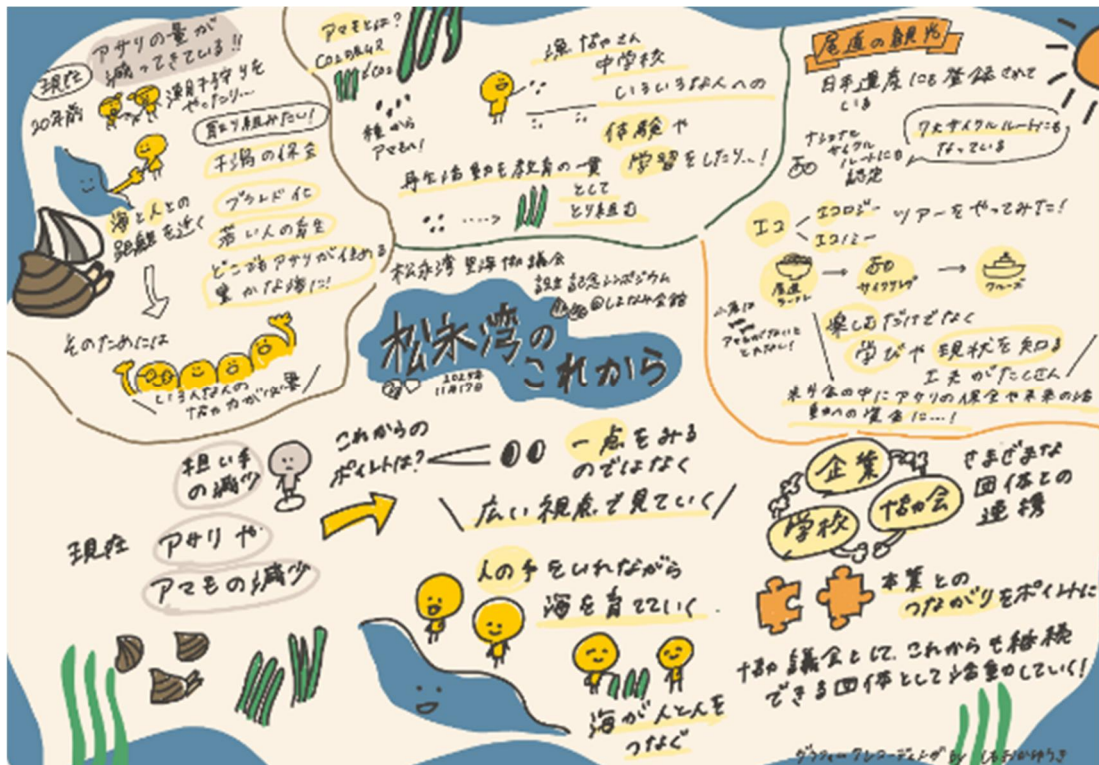 アサリの量が
減ってきている!!
現在
20年前
潮干狩りを
やったり…
取り組みたい!
干潟の保全
ブランド化
若い人の育生
どこでもアサリが住める
豊かな海に!
海と人との
距離を近く
そのためには
いろんな人の
協力が必要
アマモとは?
CO2
種から
アマモへ!
漁協さん
中学校
いろいろな人への
体験や
学習をしたり…!
再生活動を教育の一貫
として
とり組む
尾道の観光
日本遺産にも登録されて
いる
ナショナル
サイクル
ルートにも
認定
7大サイクルルートにも
なっている
エコ
エコロジー
エコノミー
ツアーをやってみた!
尾道
ラーメン
サイクリング
クルーズ
アマモがないと
とれない!
楽しむだけでなく
学びや現状を知る
工夫がたくさん
料金の中にアサリの保全や未来の活
動への資金に…!
松永湾里海協議会
設立記念シンポジウム
@しまなみ会館
松永湾の
これから
2025年
11月17日
現在
担い手
の減少
アサリや
アマモの減少
これからの
ポイントは?
一点をみる
のではなく
広い視点で見ていく
人の手をいれながら
海を育てていく
海が人と人を
つなぐ
企業
学校
協会
さまざまな
団体との
連携
本業との
つながりをポイントに
協議会として、これからも継続
できる団体として活動していく!
グラフィックレコーディング by